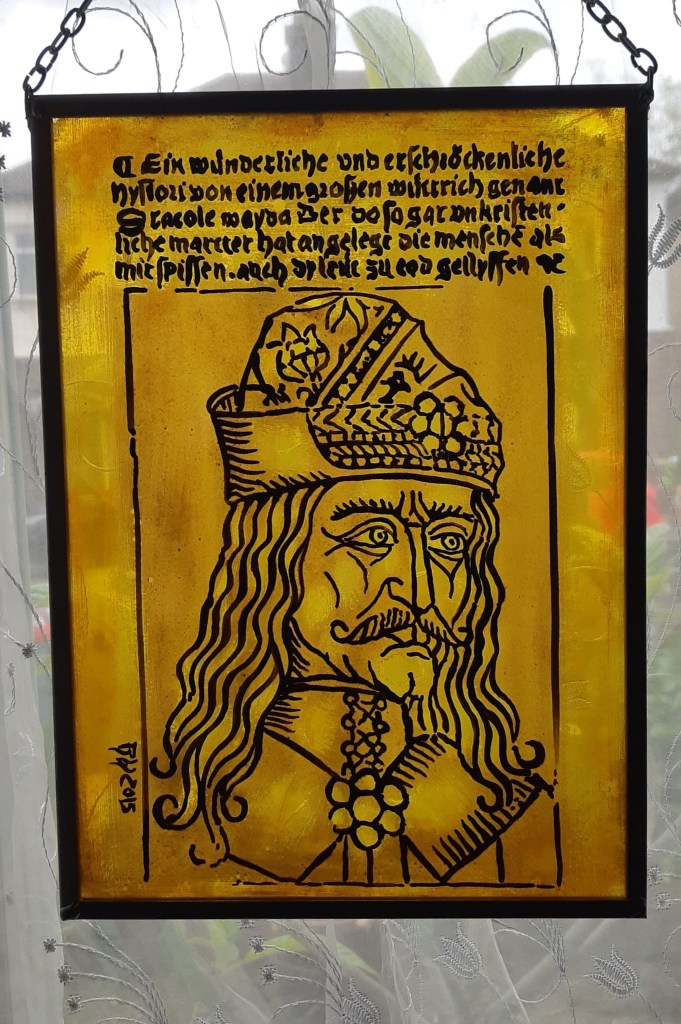 ¶ Ein wunderliche vnd erschröckenliche
hystori von einem großen wüttrich genant
Dracole wayda Der do so gar vnkristen-
liche martter hat angelegt die menschē als
mit spissen. auch dy leut zu tod geslyffen ⁊c
2015